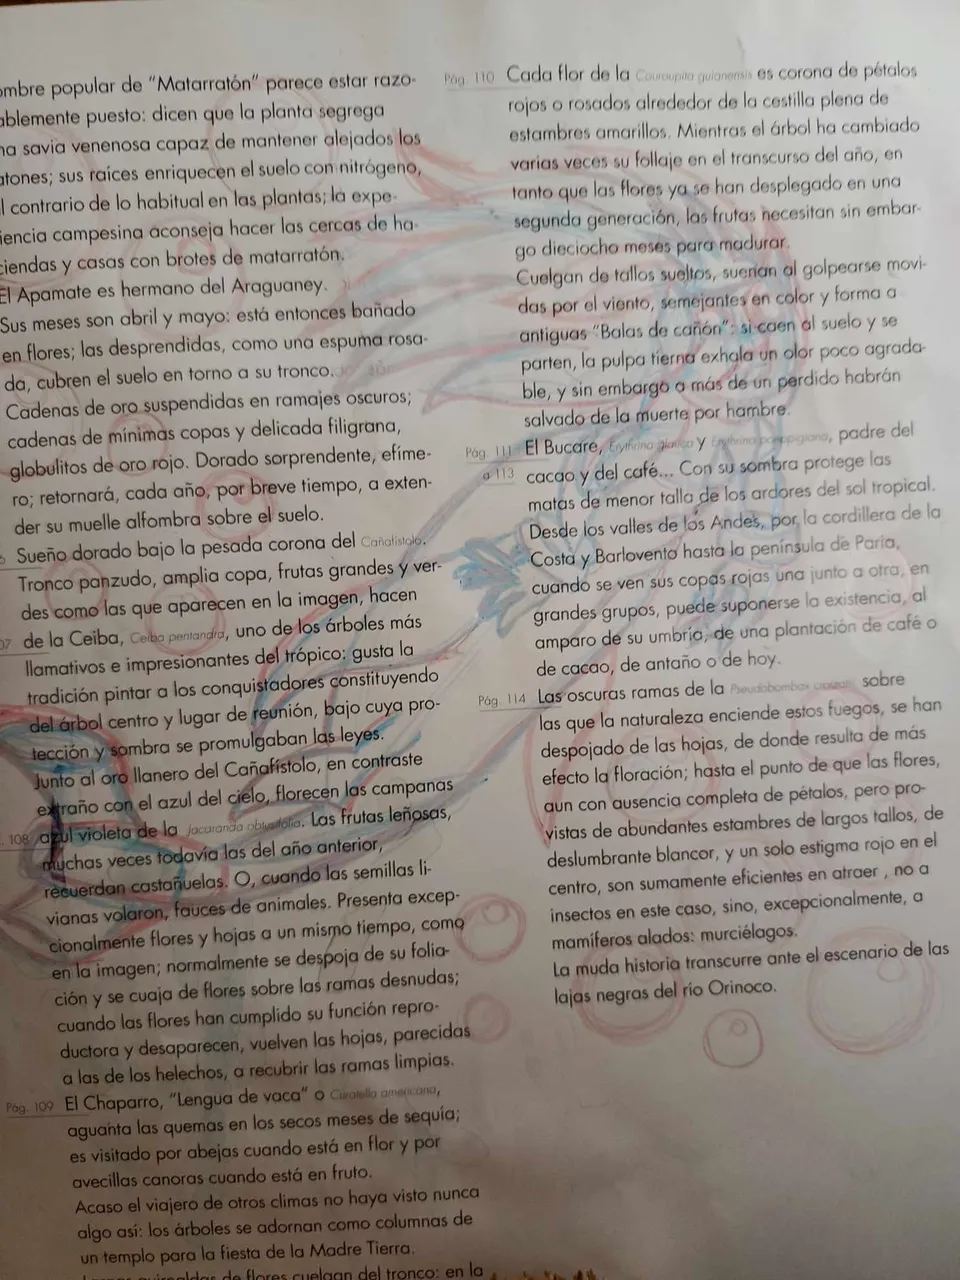 ombre popular de “Matarratón” parece estar razo-
ablemente puesto: dicen que la planta segrega
na savia venenosa capaz de mantener alejados los
atones; sus raíces enriquecen el suelo con nitrógeno,
l contrario de lo habitual en las plantas; la expe-
iencia campesina aconseja hacer las cercas de ha-
ciendas y casas con brotes de matarratón.
El Apamate es hermano del Araguaney.
Sus meses son abril y mayo: está entonces bañado
en flores; las desprendidas, como una espuma rosa-
da, cubren el suelo en torno a su tronco.
Cadenas de oro suspendidas en ramajes oscuros;
cadenas de mínimas copas y delicada filigrana,
globulitos de oro rojo. Dorado sorprendente, efíme-
ro; retornará, cada año, por breve tiempo, a exten-
der su muelle alfombra sobre el suelo.
Sueño dorado bajo la pesada corona del Cañafístolo.
Tronco panzudo, amplia copa, frutas grandes y ver-
des como las que aparecen en la imagen, hacen
07 de la Ceiba, Ceiba pentandra, uno de los árboles más
llamativos e impresionantes del trópico: gusta la
tradición pintar a los conquistadores constituyendo
del árbol centro y lugar de reunión, bajo cuya pro-
tección y sombra se promulgaban las leyes.
Junto al oro llanero del Cañafístolo, en contraste
extraño con el azul del cielo, florecen las campanas
. 108 azul violeta de la jacaranda obtusifolia. Las frutas leñosas,
muchas veces todavía las del año anterior,
recuerdan castañuelas. O, cuando las semillas li-
vianas volaron, fauces de animales. Presenta excep-
cionalmente flores y hojas a un mismo tiempo, como
en la imagen; normalmente se despoja de su folia-
ción y se cuaja de flores sobre las ramas desnudas;
cuando las flores han cumplido su función repro-
ductora y desaparecen, vuelven las hojas, parecidas
a las de los helechos, a recubrir las ramas limpias.
Pág. 109 El Chaparro, “Lengua de vaca” o Curatella americana,
aguanta las quemas en los secos meses de sequía;
es visitado por abejas cuando está en flor y por
avecillas canoras cuando está en fruto.
Acaso el viajero de otros climas no haya visto nunca
algo así: los árboles se adornan como columnas de
un templo para la fiesta de la Madre Tierra.
de flores cuelgan del tronco: en la
Pág. 110 Cada flor de la Couroupita guianensis es corona de pétalos
rojos o rosados alrededor de la cestilla plena de
estambres amarillos. Mientras el árbol ha cambiado
varias veces su follaje en el transcurso del año, en
tanto que las flores ya se han desplegado en una
segunda generación, las frutas necesitan sin embar-
go dieciocho meses para madurar.
Cuelgan de tallos sueltos, suenan al golpearse movi-
das por el viento, semejantes en color y forma a
antiguas “Balas de cañón”: si caen al suelo y se
parten, la pulpa tierna exhala un olor poco agrada-
ble, y sin embargo a más de un perdido habrán
salvado de la muerte por hambre.
Pág. 111 El Bucare, Erythrina glauca y Erythrina poeppigiana, padre del
a 113 cacao y del café... Con su sombra protege las
matas de menor talla de los ardores del sol tropical.
Desde los valles de los Andes, por la cordillera de la
Costa y Barlovento hasta la península de Paria,
cuando se ven sus copas rojas una junto a otra, en
grandes grupos, puede suponerse la existencia, al
amparo de su umbría, de una plantación de café o
de cacao, de antaño o de hoy.
Pág. 114 Las oscuras ramas de la Pseudobombax sobre
las que la naturaleza enciende estos fuegos, se han
despojado de las hojas, de donde resulta de más
efecto la floración; hasta el punto de que las flores,
aun con ausencia completa de pétalos, pero pro-
vistas de abundantes estambres de largos tallos, de
deslumbrante blancor, y un solo estigma rojo en el
centro, son sumamente eficientes en atraer , no a
insectos en este caso, sino, excepcionalmente, a
mamíferos alados: murciélagos.
La muda historia transcurre ante el escenario de las
lajas negras del río Orinoco.